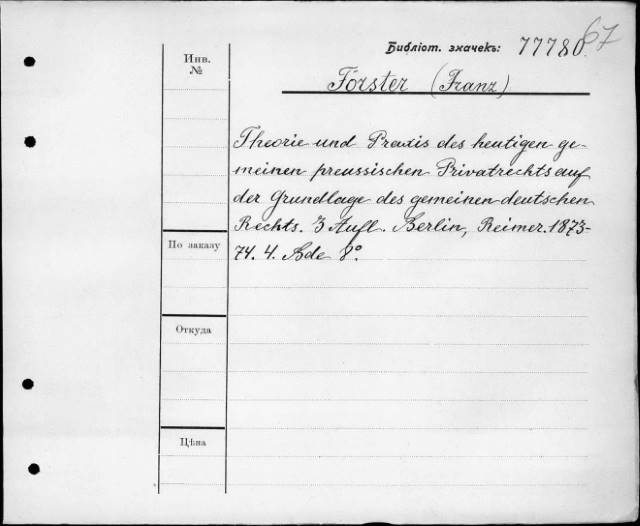 Библіот. значекъ: 77780 67
Инв.
№
Förster (Franz)
Theorie und Praxis des heutigen ge-
meinen preussischen Privatrechts auf
der Grundlage des gemeinen deutschen
Rechts. 3 Aufl. Berlin, Reimer. 1873-
74. 4. Bde 8°.
По заказу
Откуда
Цѣна